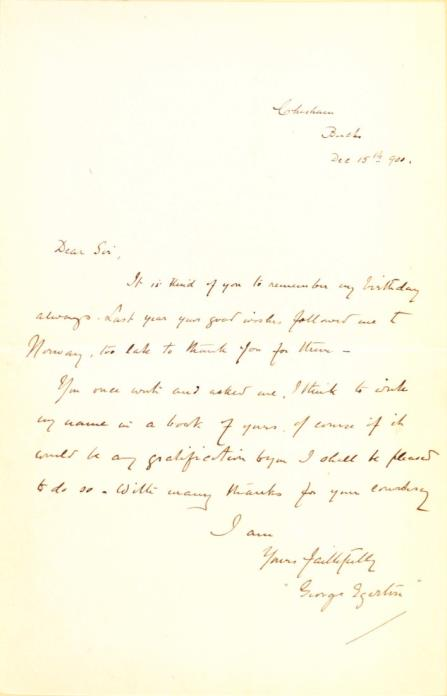 Chesham
Bucks
Dec 15th 900.
Dear Sir,
It is kind of you to remember my birthday
always. Last year your good wishes followed me to
Norway, too late to thank you for them –
You once wrote and asked me, I think to write
my name in a book of yours. of course if it
would be any gratification to you I shall be pleased
to do so – With many thanks for your courtesy
I am
Yours faithfully
"George Egerton"